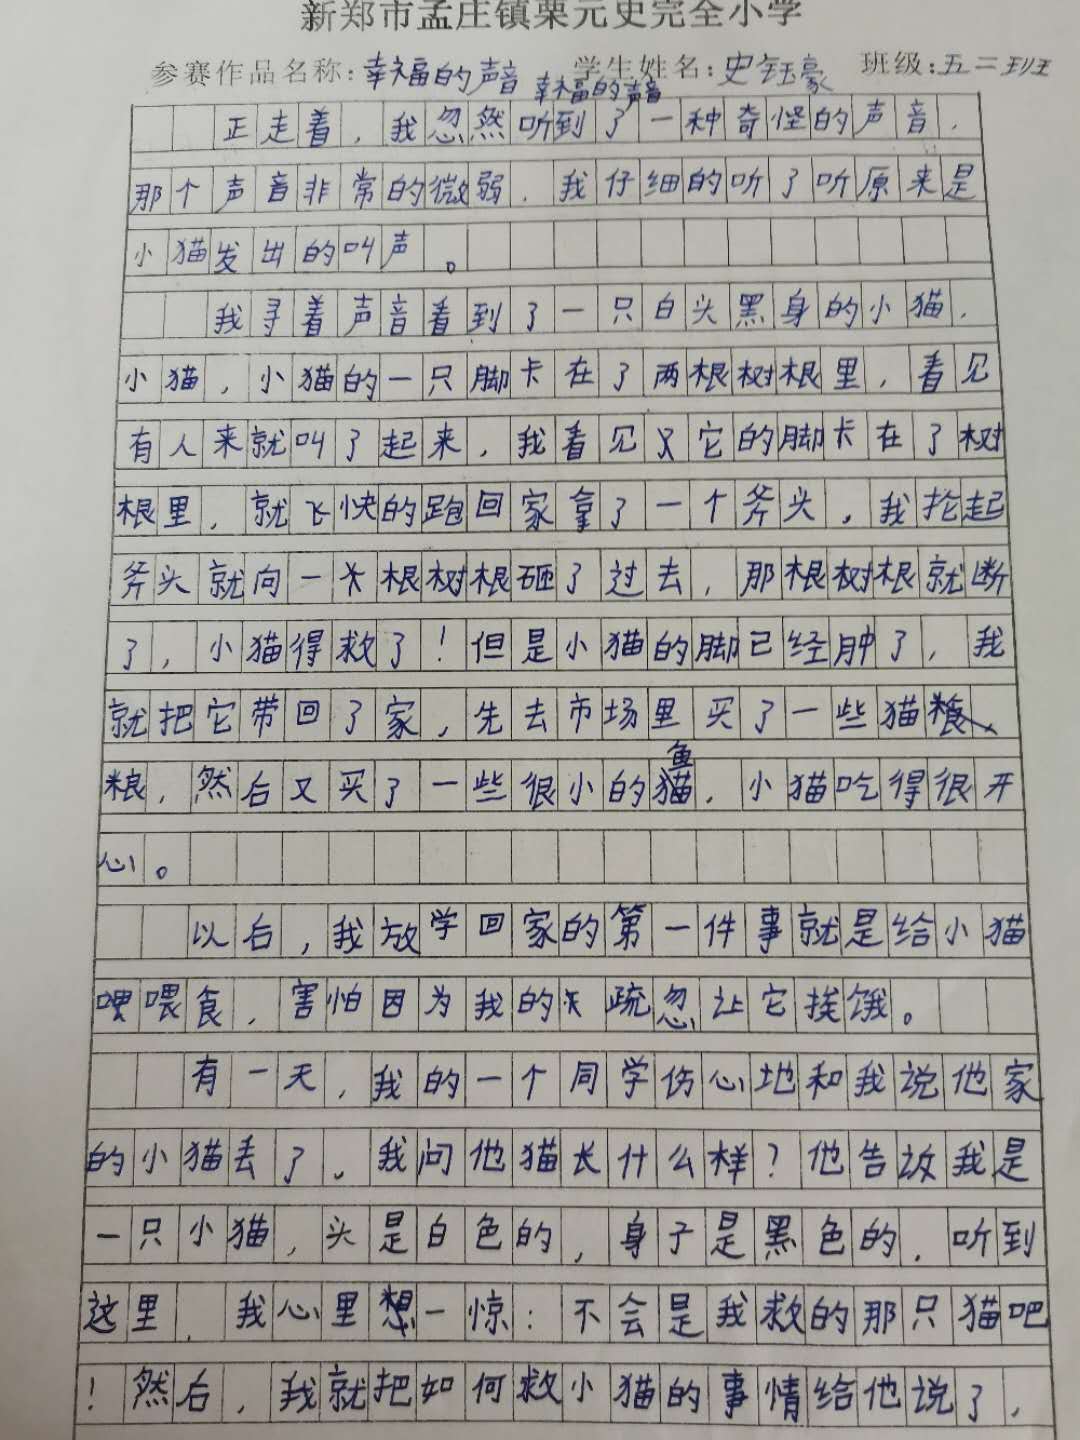 新郑市孟庄镇栗元史完全小学
参赛作品名称:幸福的声音 学生姓名:史钰豪 班级:五二班
幸福的声音
正走着,我忽然听到了一种奇怪的声音,
那个声音非常的微弱,我仔细的听了听原来是
小猫发出的叫声。
我寻着声音看到了一只白头黑身的小猫,
小猫,小猫的一只脚卡在了两根树根里,看见
有人来就叫了起来,我看见它的脚卡在了树
根里,就飞快的跑回家拿了一个斧头,我抡起
斧头就向一根树根砸了过去,那根树根就断
了,小猫得救了!但是小猫的脚已经肿了,我
就把它带回了家,先去市场里买了一些猫
粮,然后又买了一些很小的鱼,小猫吃得很开
心。
以后,我放学回家的第一件事就是给小猫
喂食,害怕因为我的疏忽让它挨饿。
有一天,我的一个同学伤心地和我说他家
的小猫丢了。我问他猫长什么样?他告诉我是
一只小猫,头是白色的,身子是黑色的,听到
这里,我心里想一惊:不会是我救的那只猫吧
!然后,我就把如何救小猫的事情给他说了,